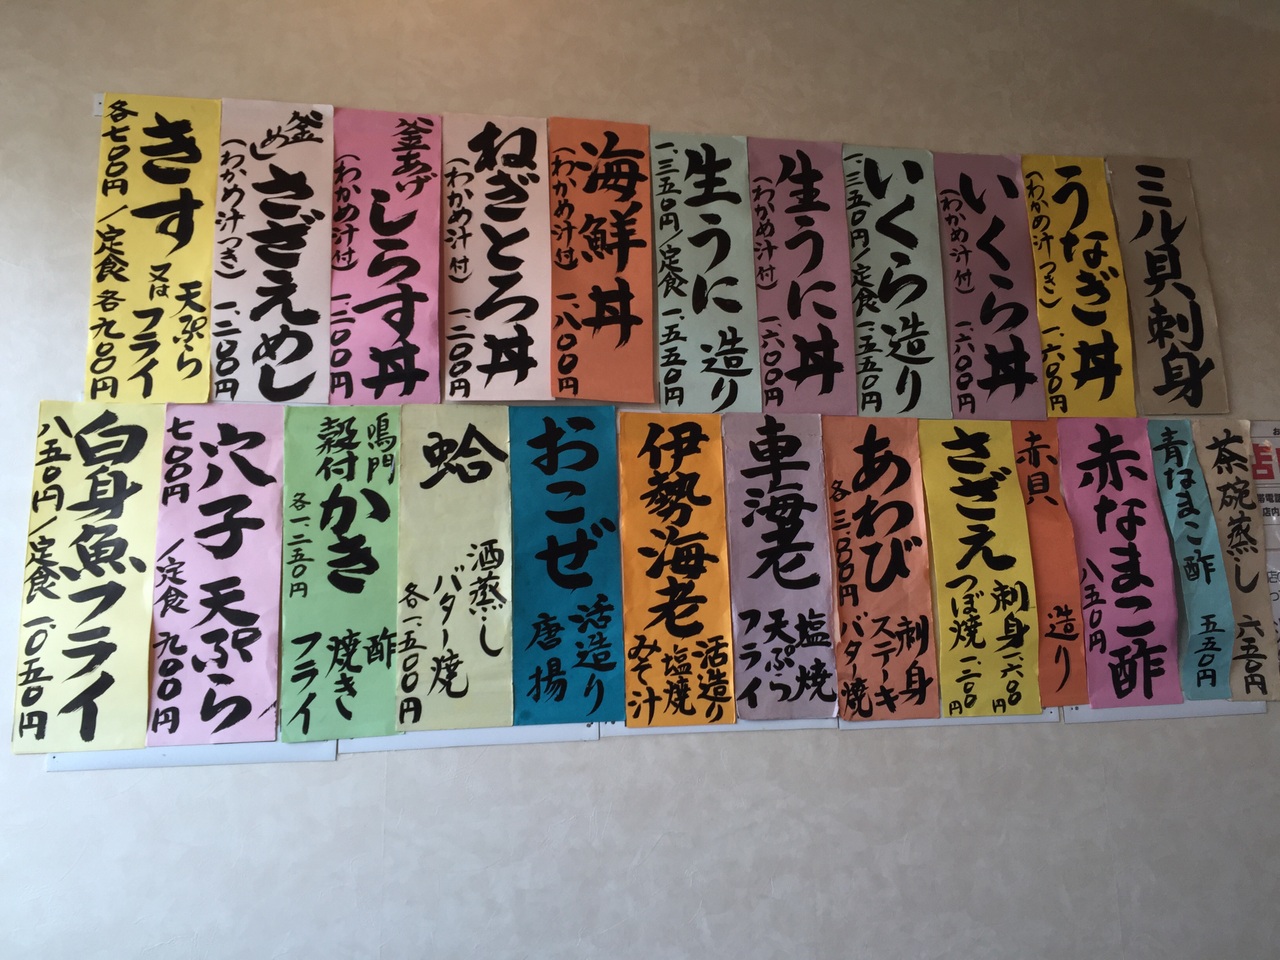 ミル貝刺身
うなぎ丼
(わかめ汁つき)
一、六〇〇円
いくら丼
(わかめ汁付)
一、六〇〇円
いくら造り
一、三五〇円/定食一、五五〇円
生うに丼
(わかめ汁付)
一、六〇〇円
生うに造り
一、三五〇円/定食一、五五〇円
海鮮丼
(わかめ汁付)
一、八〇〇円
ねぎとろ丼
(わかめ汁付)
一、二〇〇円
釜あげ
しらす丼
(わかめ汁付)
一、二〇〇円
釜めし
さざえめし
(わかめ汁つき)
一、二〇〇円
きす
又は
天ぷら
フライ
各七〇〇円/定食各九〇〇円
茶碗蒸し
六五〇円
青なまこ酢
五五〇円
赤なまこ酢
八五〇円
赤貝
造り
さざえ
刺身
つぼ焼
あわび
刺身
ステーキ
バター焼
車海老
塩焼
天ぷら
フライ
伊勢海老
活造り
塩焼
みそ汁
おこぜ
活造り
唐揚
蛤
酒蒸し
バター焼
各一、五〇〇円
鳴門
殻付
かき
各一、二五〇円
酢
焼き
フライ
穴子天ぷら
七〇〇円/定食九〇〇円
白身魚フライ
八五〇円/定食一、〇五〇円